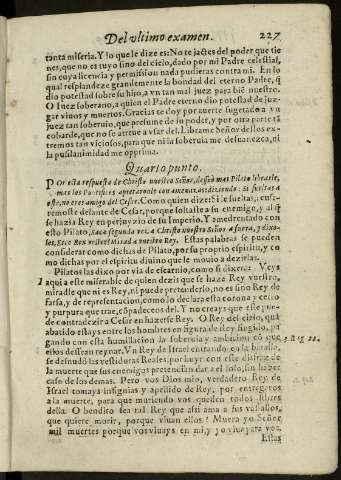 Del vltimo examen. 227
tanta miseria. Y lo que le dize es: No te jactes del poder que tie
nes, que no es tuyo sino del cielo, dado por mi Padre celestial,
sin cuya licencia y permission nada pudieras contra mi. En lo
qual resplandeze grandemente la bondad del eterno Padre, q̃
dio potestad sobre su hijo, a vn tan mal juez para biẽ nuestro.
O Iuez soberano, a quien el Padre eterno dio potestad de juz-
gar viuos y muertos. Gracias te doy por auerte sugetado a vn
juez tan soberuio, que presume de su poder, y por otra parte tã
couarde, que no se atreue a vsar del. Librame Señor destos ex-
tremos tan viciosos, para que ni la soberuia me desuanezca, ni
la pusilanimidad me oprima.
Quarto punto.
POr esta respuesta de Christo nuestro Señor, desseò mas Pilato librarle,
mas los Pontifices apretaronle con amenazas, diziendo: Si sueltas a
este, no eres amigo del Cesar. Como quien dize: Si le sueltas, cause-
remoste delante de Cesar, porque soltaste a su enemigo, y al q̃
se hazia Rey en perjuyzio de su Imperio. Y amedrentado con
esto Pilato, saco segunda vez a Christo nuestro Señor a fuera, y dixo-
les, Ecce Rex vester: Mirad a vuestro Rey. Estas palabras se pueden
considerar como dichas de Pilato, por su proprio espiritu, y co
mo dichas por el espiritu diuino que le mouio a dezirlas.
Pilatos las dixo por via de escarnio, como si dixera: Veys
1 aqui a este miserable de quien dezis que se haze Rey vuestro,
miradle que ni es Rey, ni puede pretenderlo, no es sino Rey de
farsa, y de representacion, como lo declara esta corona y cetro
y purpura que trae, cõpadeceos del. Y no creays que este pue-
de contradezir a Cesar en hazerse Rey. O Rey del cielo, quã
abatido estays entre los hombres en figura de Rey fingido, pa
gando con esta humillacion la soberuia y ambicion cõ que
3. Reg. 22.
ellos dessean reynar. Vn Rey de Israel entrando en la batalla,
se desnudò las vestiduras Reales, por huyr con este disfraz de
la muerte que sus enemigos pretendian dar a el solo, sin hazer
caso de los demas. Pero vos Dios mio, verdadero Rey de
Israel tomays insignias y apellido de Rey, por entregaros
a la muerte, para que muriendo vos queden todos libres
della. O bendito sea tal Rey que assi ama a sus vassallos,
que quiere morir, porque viuan ellos! Muera yo Señor
mil muertes porque vos viuays en mi, y yo viua para vos.
Estas